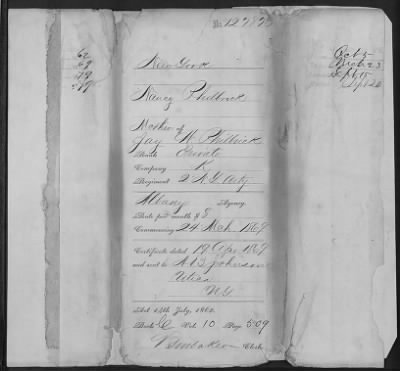 No. 127,873
New York
Nancy Philbrick
Mother of
Jay H Philbrick
Rank Private
Company K
Regiment 2 N.Y. Arty
Albany Agency.
Rate per month $8
Commencing 24 Mch 1869
Certificate dated 19 Apr 1869
and sent to A.B. Johnson
Utica
N.Y.
Act 14th July, 1862.
Book C Vol. 10 Page 509
Clerk.
62
69
79
Oct 5
Sept 15
Sept 26